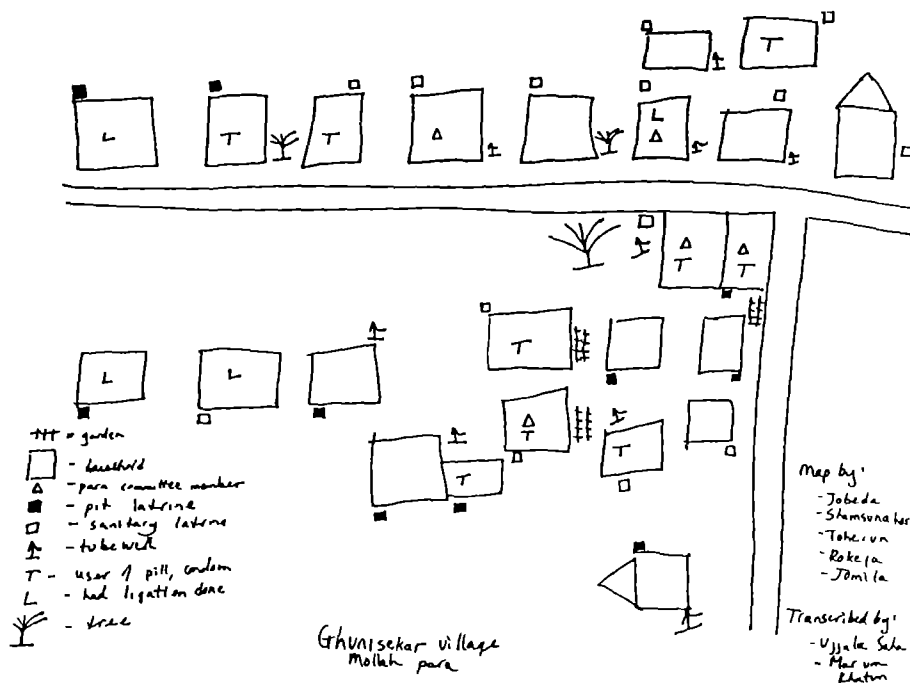 L
T
T
T
△
L
△
△
T
△
T
T
L
L
△
T
T
T
= garden
- household
- para committee member
- pit latrine
- sanitary latrine
- tubewell
T - user of pill, condom
L - had ligation done
- tree
Ghunisekar village
Mollah para
Map by:
- Jobeda
- Shamsunahar
- Rokeja
- Jomila
Transcribed by:
- Ujjala Saha
- Khatun